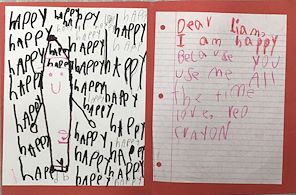 happy happy happy happy
happy happy happy
happy happy happy
happy happy happy
happy happy happy
happy happy happy
happy happy happy
happy happy happy
happy happy happy
happy happy
red
Dear Liam,
I am happy
Because you
use me All
the time
love, red
crayon